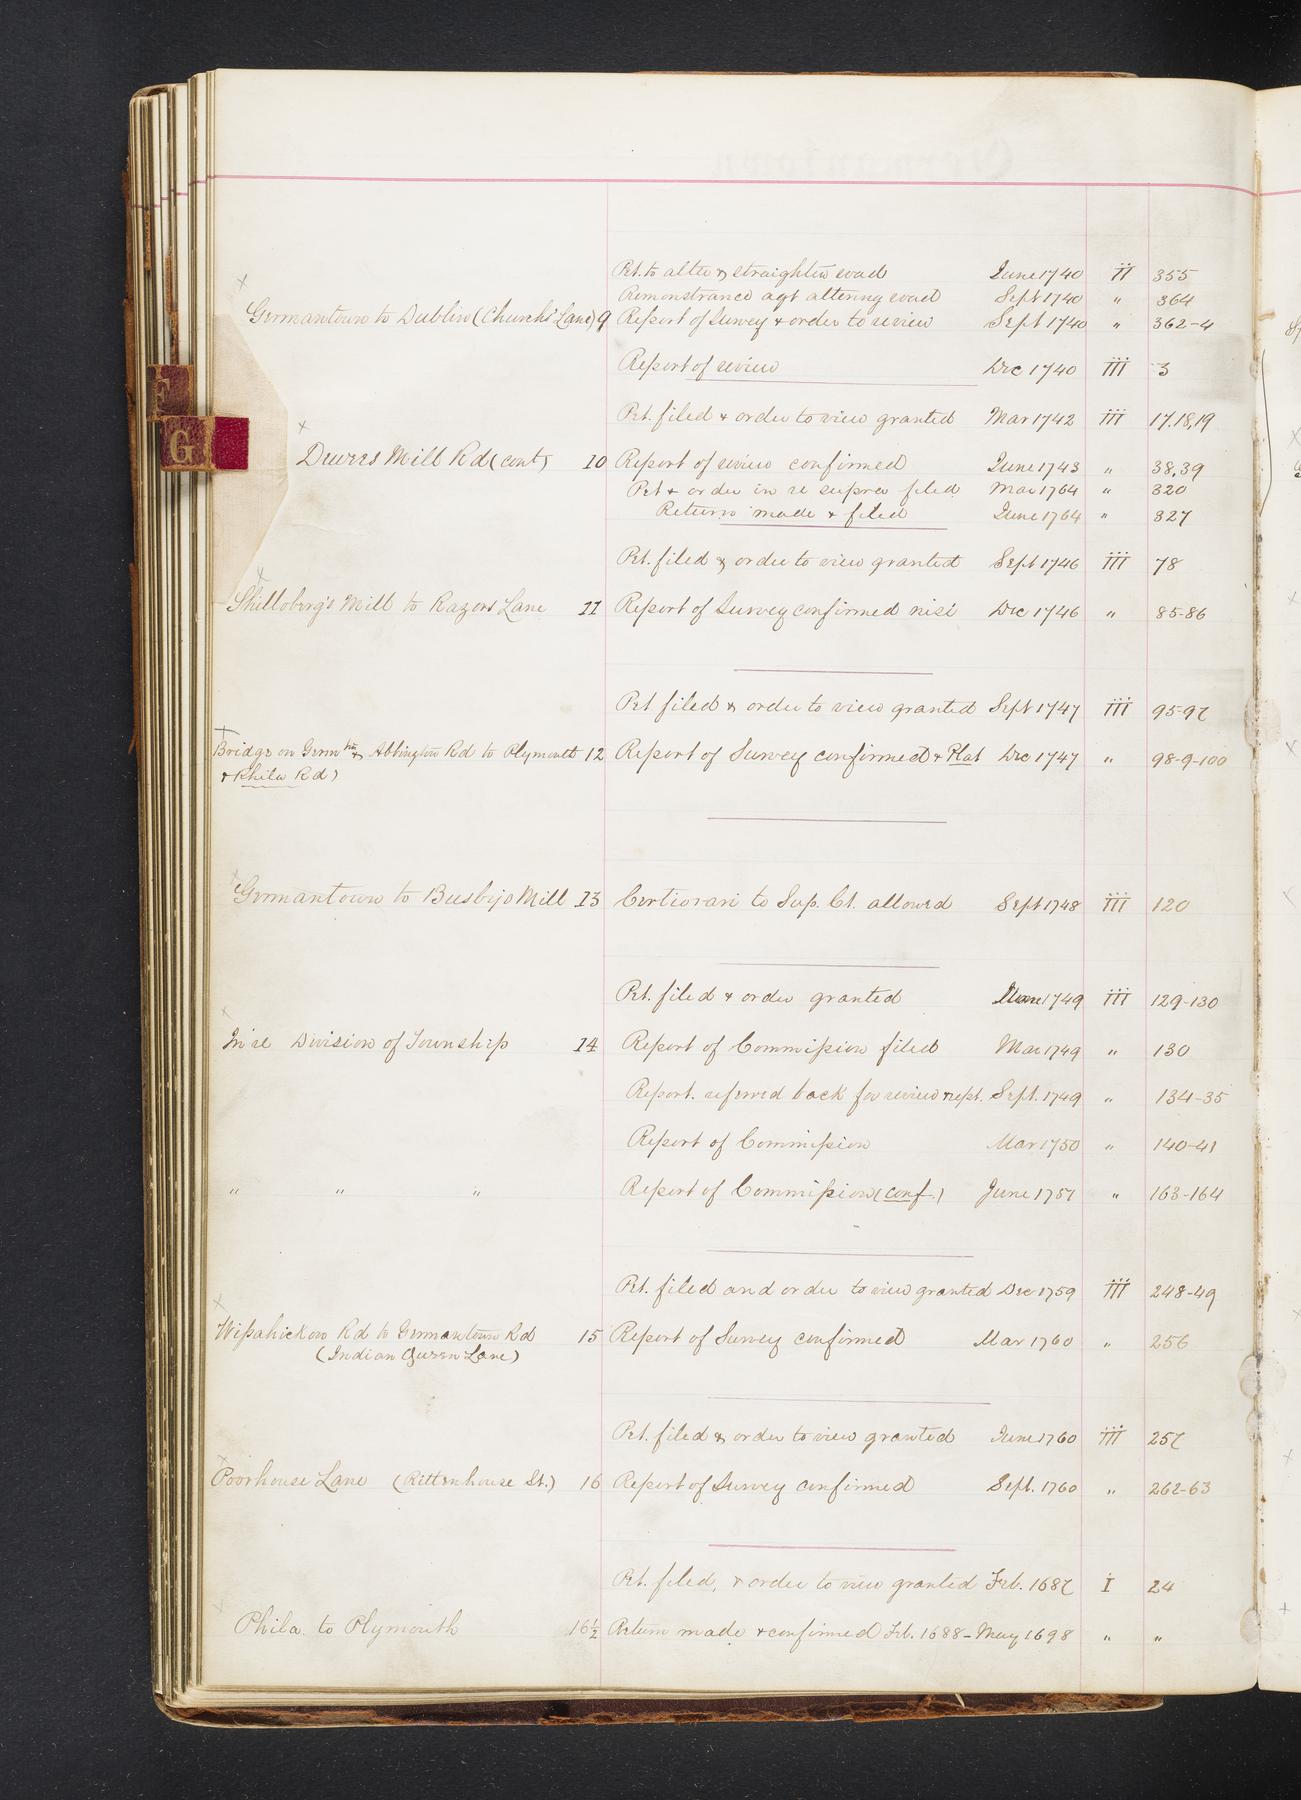 Pet. to alter & straighten road June 1740 ii 355
Remonstrance agt altering road Sept 1740 " 364
Germantown to Dublin (Church Lane) 9 Report of Survey + order to review Sept 1740 " 362-4
Report of review Dec 1740 iii 3
F
G
Pet. filed + order to view granted Mar 1742 iii 17.18.19
Dewees Mill Rd (cont) 10 Report of review confirmed June 1743 " 38,39
Pet + order in re supra filed Mar 1764 " 320
Return made + filed June 1764 " 327
Pet. filed & order to view granted Sept 1746 iii 78
Mill to Razors Lane 11 Report of Survey confirmed nisi Dec 1746 " 85-86
Pet filed & order to view granted Sept 1747 iii 95-97
Bridge on Germtn & Abbington Rd to Plymouth 12 Report of Survey confirmed + Plat Dec 1747 " 98-9-100
+ Phila Rd)
Germantown to Busbys Mill 13 Certiorari to Sup. Ct. allowed Sept 1748 iii 120
Pet. filed + order granted 1749 iii 129-130
In re Division of Township 14 Report of Commission filed Mar 1749 " 130
Report. referred back for review + rept. Sept. 1749 " 134-35
Report of Commission Mar 1750 " 140-41
" " " Report of Commission (conf.) June 1751 " 163-164
Pet. filed and order to view granted Dec 1759 iii 248-49
Wissahickon Rd to Germantown Rd 15 Report of Survey confirmed Mar 1760 " 256
(Indian Queen Lane)
Pet. filed & order to view granted June 1760 iii 257
Poorhouse Lane (Rittenhouse St.) 16 Report of Survey confirmed Sept. 1760 " 262-63
Pet. filed, + order to view granted Feb. 1687 I 24
Phila. to Plymouth 16½ Return made + confirmed Feb. 1688 - May 1698 " "